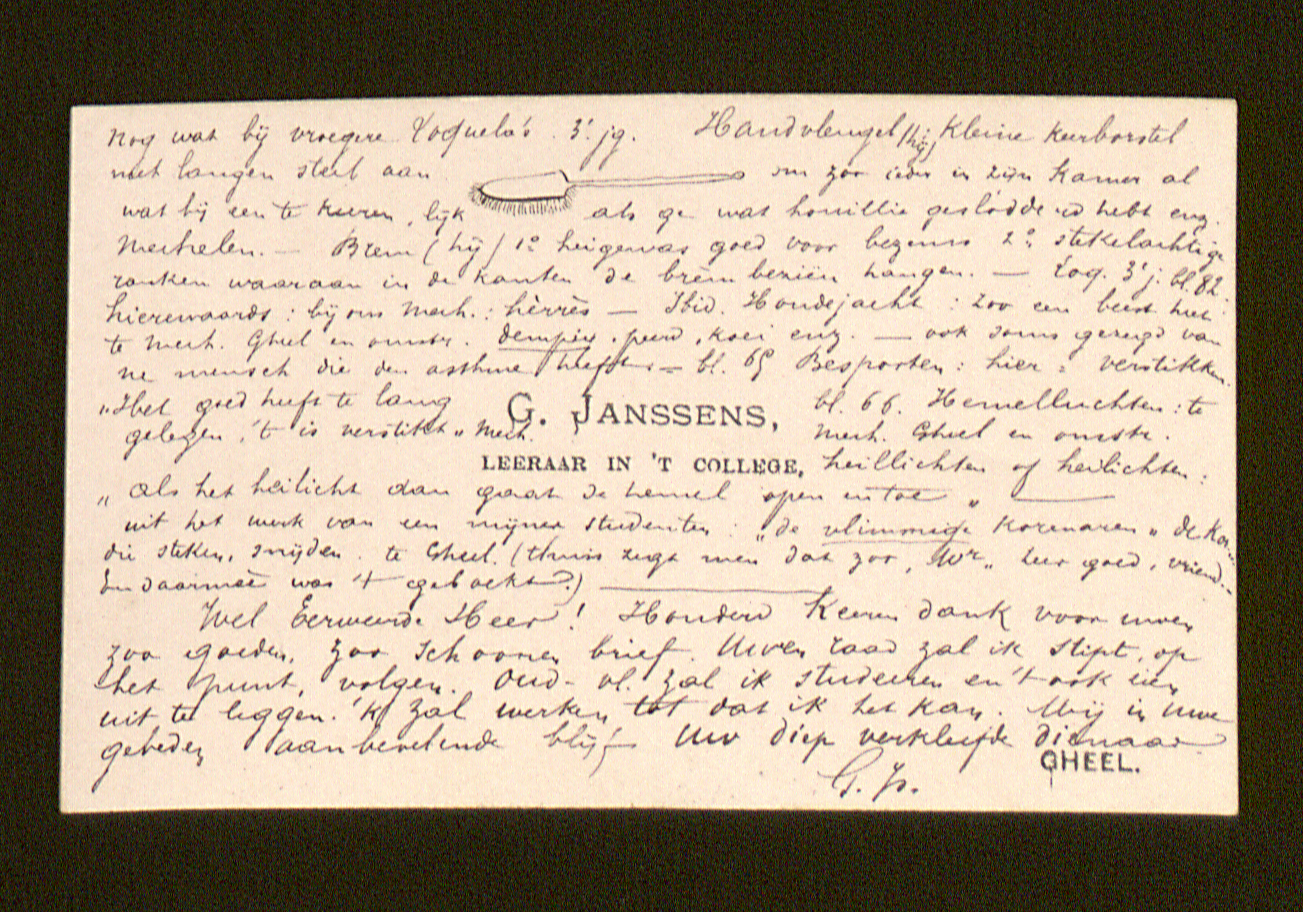 nog wat bij vroegere Loquela's. 3e jg. Handvleugel (hij) kleine keerborstel
met langen steel aan om zoo ieder in zijn kamer al
wat bij een te keeren, lijk als ge wat houillie geslodderd hebt enz.
Mechelen. — Brem (hij) 1° heigewas goed voor bezems 2° stekelachtige
ranken waaraan in de kanten de brembeziën hangen. — Loq. 3e j. bl. 82.
hierewaards: bij ons Mech.: hèrrès — Ibid. Hondejacht: zoo een beest hiet
te Mech. Gheel en omstr. dempig. peerd, koei enz. — ook soms gezegd van
ne mensch die den asthme heeft — bl. 65 Besporten: hier = verstikken.
"Het goed heeft te lang
gelegen, 't is verstikt" Mech.
G. JANSSENS,
LEERAAR IN 'T COLLEGE,
bl. 66. Hemelluchten: te
Mech. Gheel en omstr.
heillichten of heilichten:
"als het heilicht dan gaat de hemel open en toe" —
uit het werk van een mijner studenten: "de vlimmige korenaren" de
die steken, snijden. te Gheel. (thuis zegt men dat zoo, Mr." zeer goed, vriend.
En daarmeê was 't geboekt.) —
Wel Eerweerde Heer! Honderd keeren dank voor uwen
zoo goeden, zoo schoonen brief. Uwen raad zal ik stipt, op
het punt, volgen. Oud-vl. zal ik studeeren en 't ook zien
uit te leggen. 'k zal werken tot dat ik het kan. Mij in uwe
gebeden aanbevelende blijf Uw diep verkleefde dienaar
G. Js.
GHEEL.